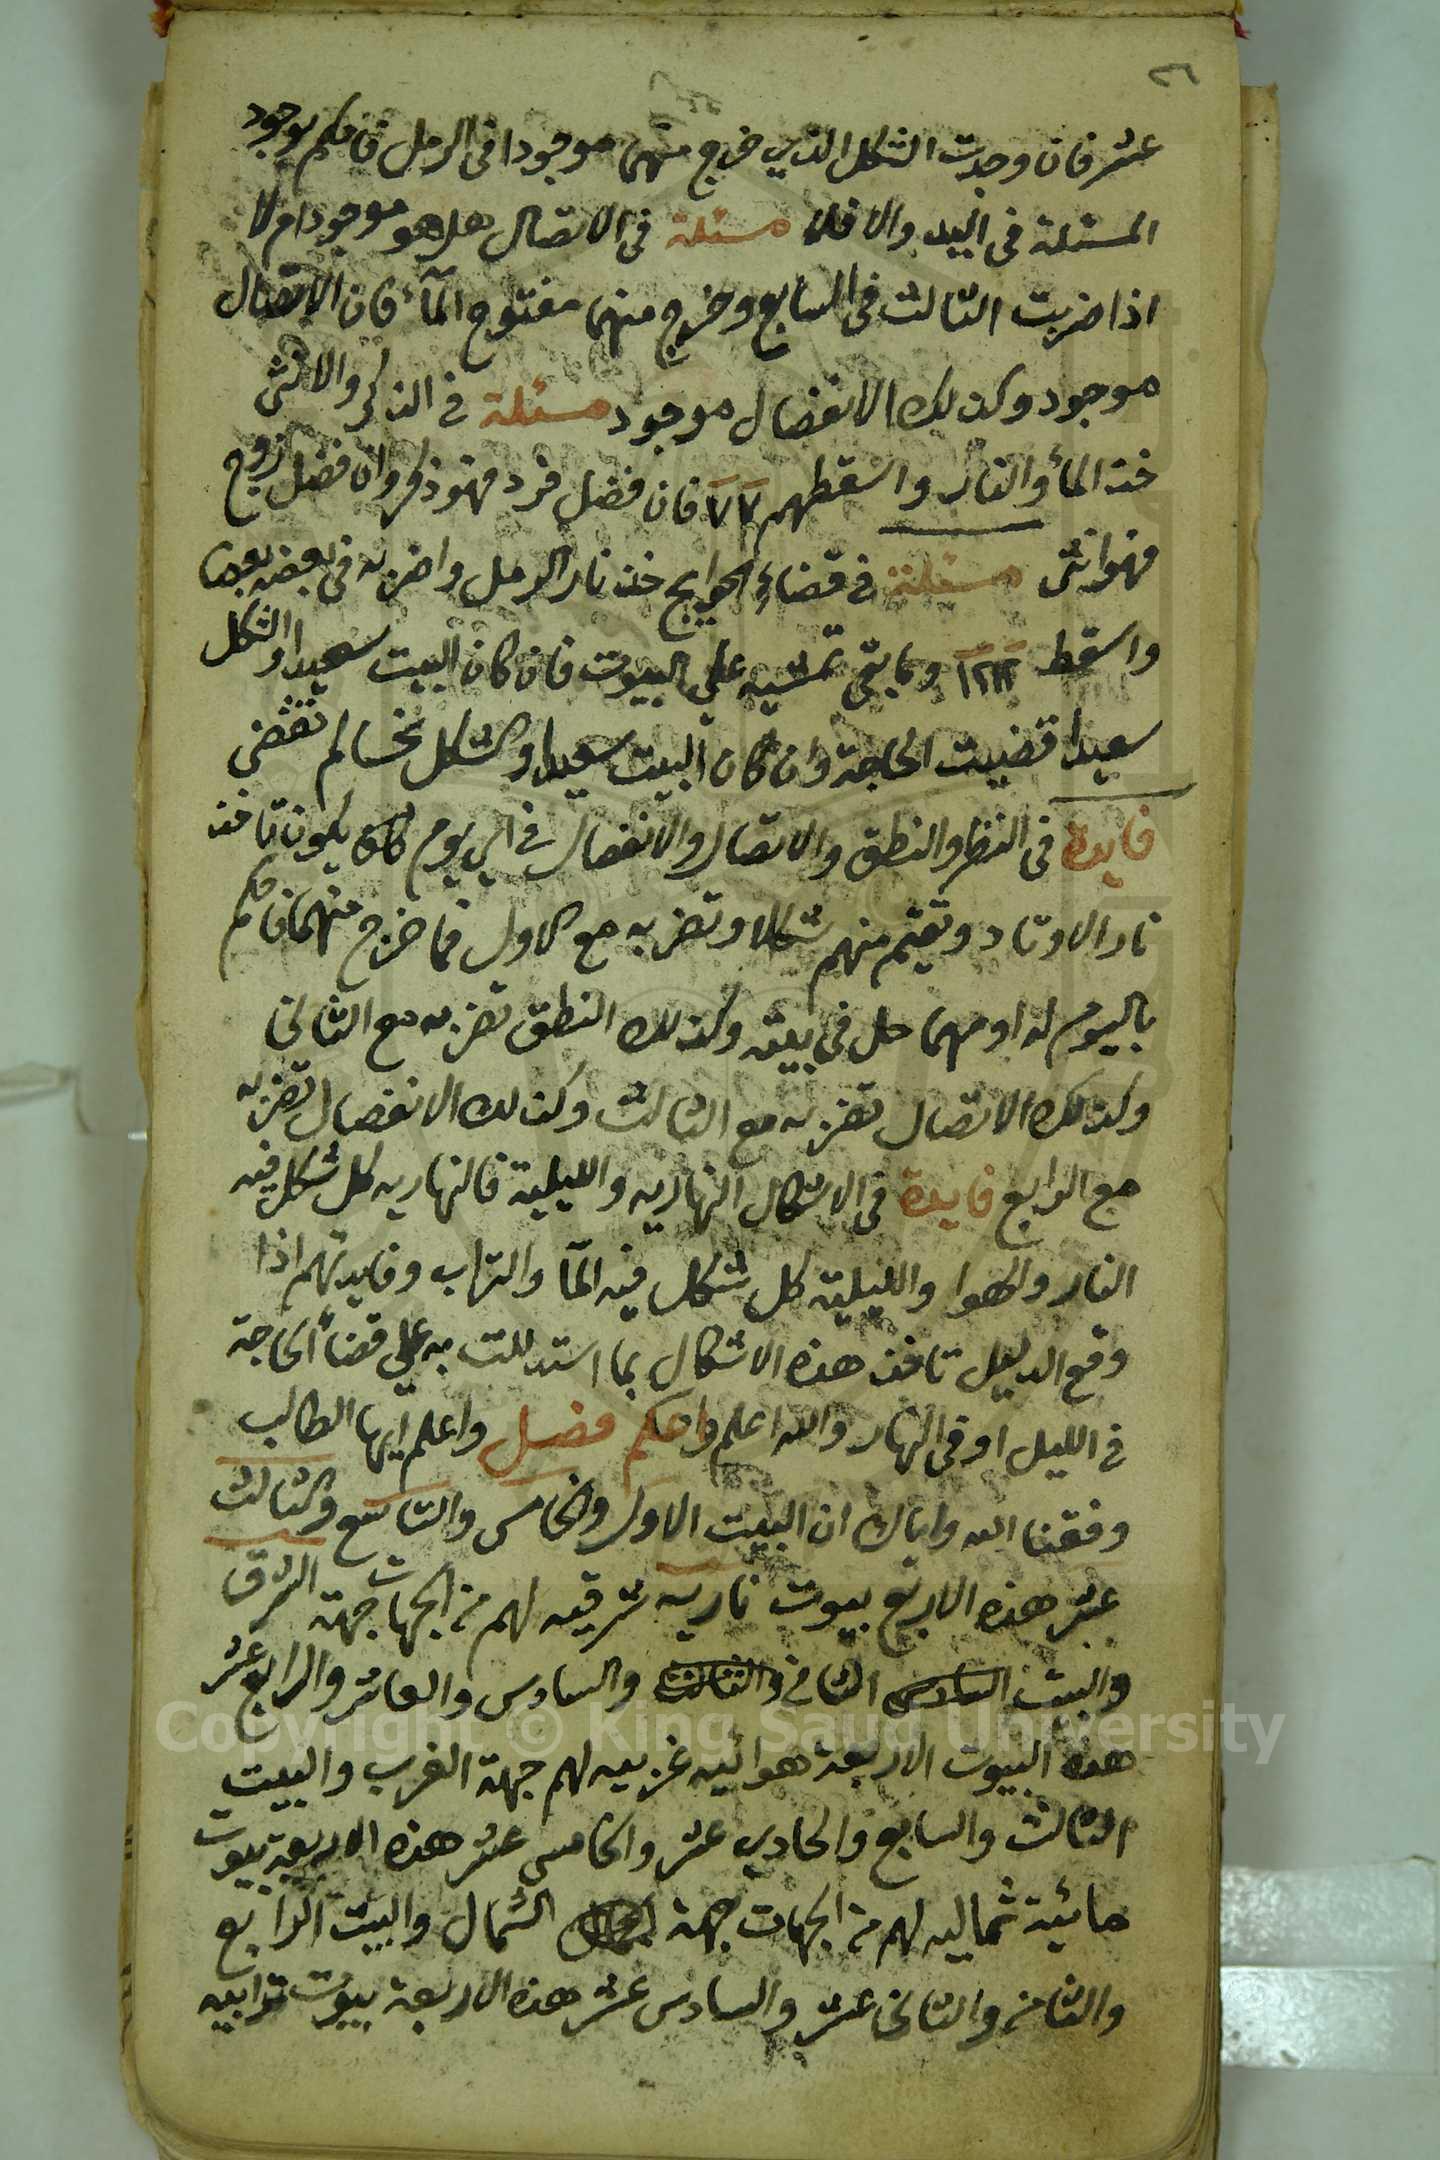 ٢٦
عشر فان وجدت الشكل الذي خرج منهما موجودا في الرمل فاحكم بوجود
المسئلة في اليد والا فلا مسئلة في الاتصال هل هو موجود ام لا
اذا ضربت الثالث في السابع وخرج منهما مفتوح المآء فان الاتصال
موجود وكذلك الانفصال موجود مسئلة في الذكر والانثى
خذ المأ والنار واسقطهم ٧٧ فان فضل فرد فهو ذكر وان فضل زوج
فهو انثى مسئلة في قضاء الحوايج خذ نار الرمل واضربه في بعضه بعضا
واسقط ١٢١٢ وما بقي تمشيه علي البيوت فان كان البيت سعيدا والشكل
سعيدا قضيت الحاجة وان كان البيت سعيدا والشكل نحسا لم تنقضي
فايدة في النظر والنطق والاتصال والانفصال في اي يوم كان يكون تاخذ
نار الاوتاد وتقيم منهم شكلا وتضربه مع الاول فما خرج منهما فاحكم
باليوم له او مهما حل في بيته وكذلك النطق تضربه مع الثاني
وكذلك الاتصال تضربه مع الثالث وكذلك الانفصال تضربه
مع الرابع فايدة في الاشكال النهاريه والليلية فالنهاريه كل شكل فيه
النار والهوا والليلية كل شكل فيه المآ والتراب وفايدتهم اذا
وقع الدليل تاخذ هذه الاشكال بما استدللت به علي قضاء الحاجة
في الليل او في النهار والله اعلم واحكم فصل واعلم ايها الطالب
وفقنا الله واياك ان البيت الاول والخامس والتاسع والثالث
عشر هذه الاربع بيوت ناريه شرقيه لهم من الجهات جهة الشرق
والبيت الثاني والسادس والعاشر والرابع عشر
هذه البيوت الاربعة هوائيه غربيه لهم جهة الغرب والبيت
الثالث والسابع والحادي عشر والخامس عشر هذه الاربعة بيوت
مائية شماليه لهم من الجهات جهة الشمال والبيت الرابع
والثامن والثاني عشر والسادس عشر هذه الاربعة بيوت ترابيه
Copyright © King Saud University